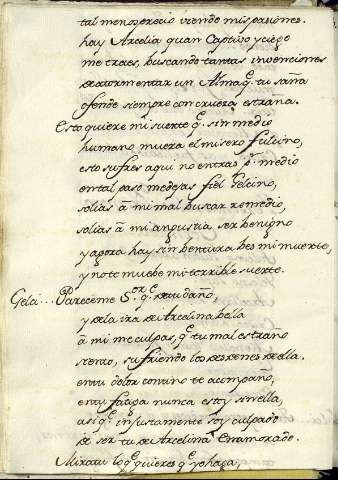 tal menosprecio viendo mis pasiones.
hay Arcelia quan Captivo y ciego
me traes, buscando tantas invenciones
de atormentar un Alma q̃ tu saña
ofende siempre con crueza estraña.
Esto quiere mi suerte q̃ sin medio
humano muera el misero fulcino,
esto sufres aqui no entras pr. medio
en tal paso me dejas fiel Gelcino,
solias â mi mal buscar remedio,
solias â mi angustia ser benigno
y agora hay sin bentura bes mi muerte,
y no te muebe mi terrible suerte.
Gela... Pareceme Sor. q̃ de tu daño,
y de la ira de Arcelina bella
â mi me culpas, q̃ tu mal estraño
siento, sufriendo los desdenes della.
en tu dolor contino te acompaño,
en tu fatiga nunca estoy sin ella,
asi q̃ injustamente soy culpado
de ser tu de Arcelina Enamorado.
Mira tu lo q̃ quieres q̃ yo haga,